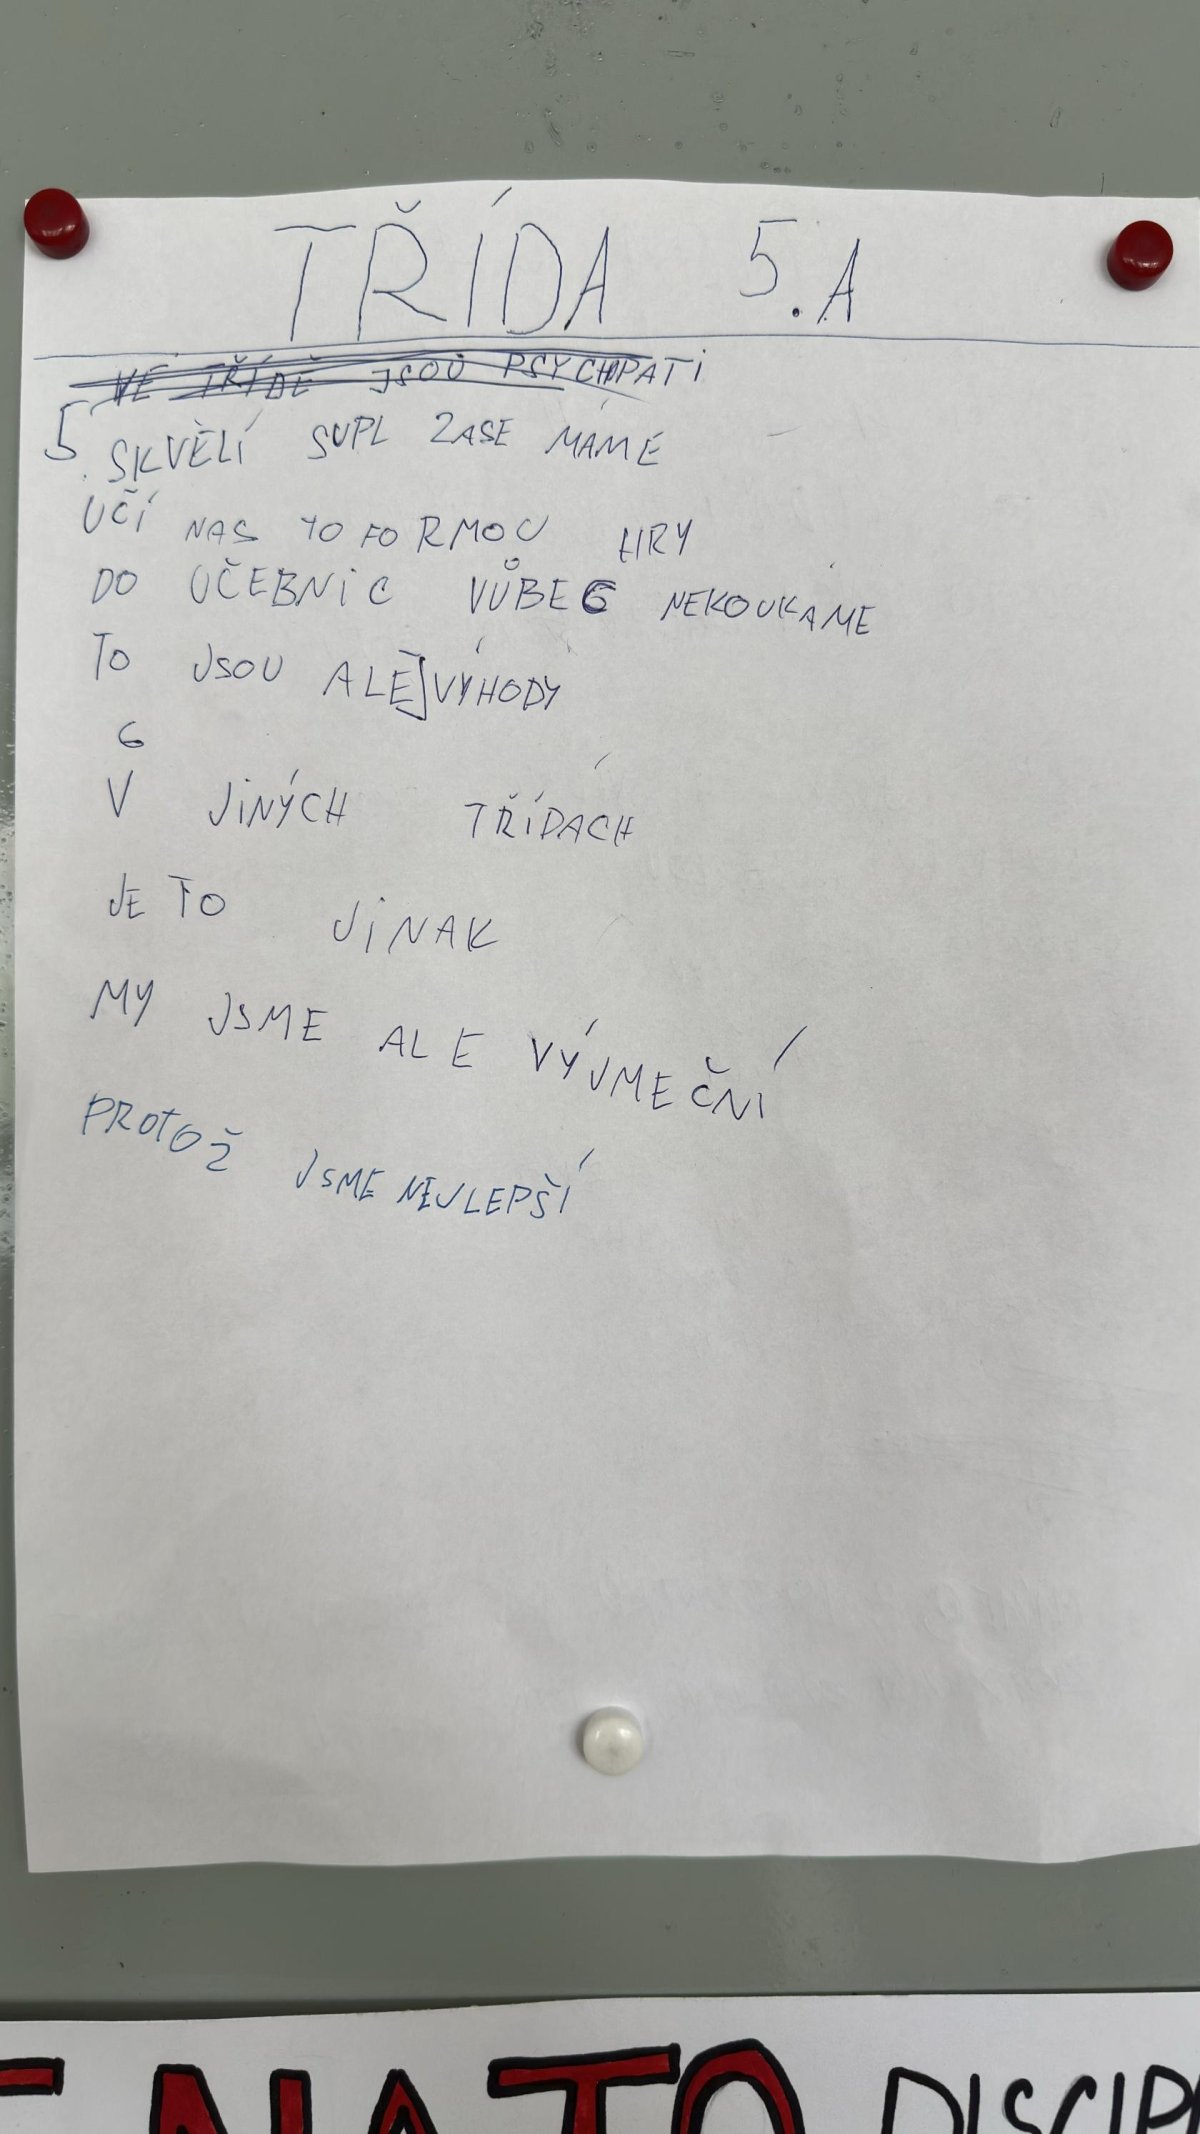 TŘÍDA 5.A
VE TŘÍDĚ JSOU PSYCHPATI
5. SKVĚLÍ SUPL ZASE MÁME
UČÍ NAS TO FORMOU HRY
DO UČEBNIC VŮBEC NEKOUKÁME
TO JSOU ALE VÝHODY
6
V JINÝCH TŘÍDÁCH
JE TO JINAK
MY JSME ALE VÝJMEČNÍ
PROTOŽ JSME NEJLEPŠÍ
NATO DISCIP